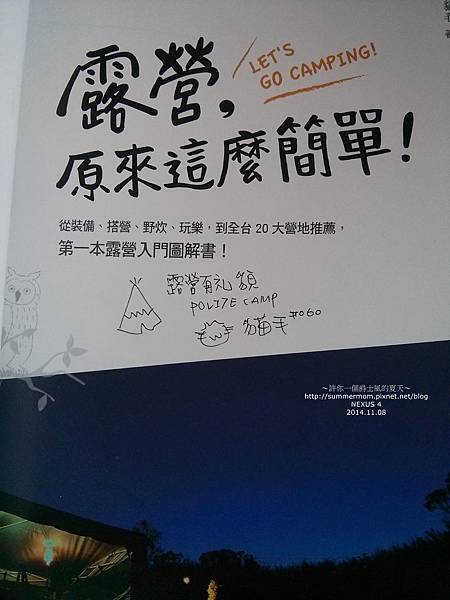 貓毛 著
LET'S
GO CAMPING!
露營，
原來這麼簡單！
從裝備、搭營、野炊、玩樂，到全台 20 大營地推薦，
第一本露營入門圖解書！
露營有礼貌
POLITE CAMP
貓毛 #060
～許你一個爵士風的夏天～
http://summermom.pixnet.net/blog
NEXUS 4
2014.11.08